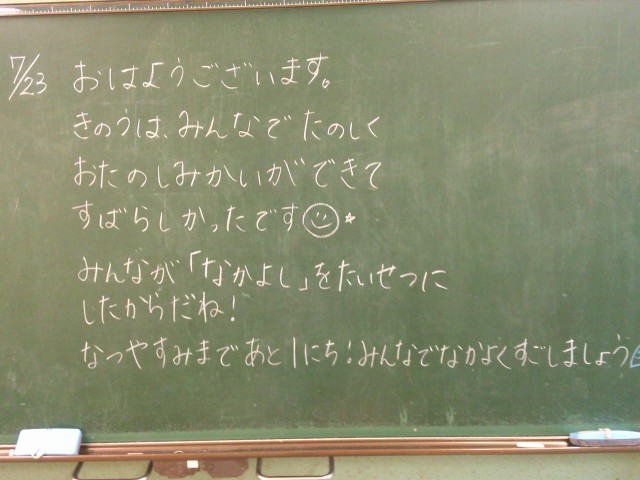 7/23 おはようございます。
きのうは、みんなでたのしく
おたのしみかいができて
すばらしかったです☺⭑
みんなが「なかよし」をたいせつに
したからだね!
なつやすみまであと1にち!みんなでなかよくすごしましょう